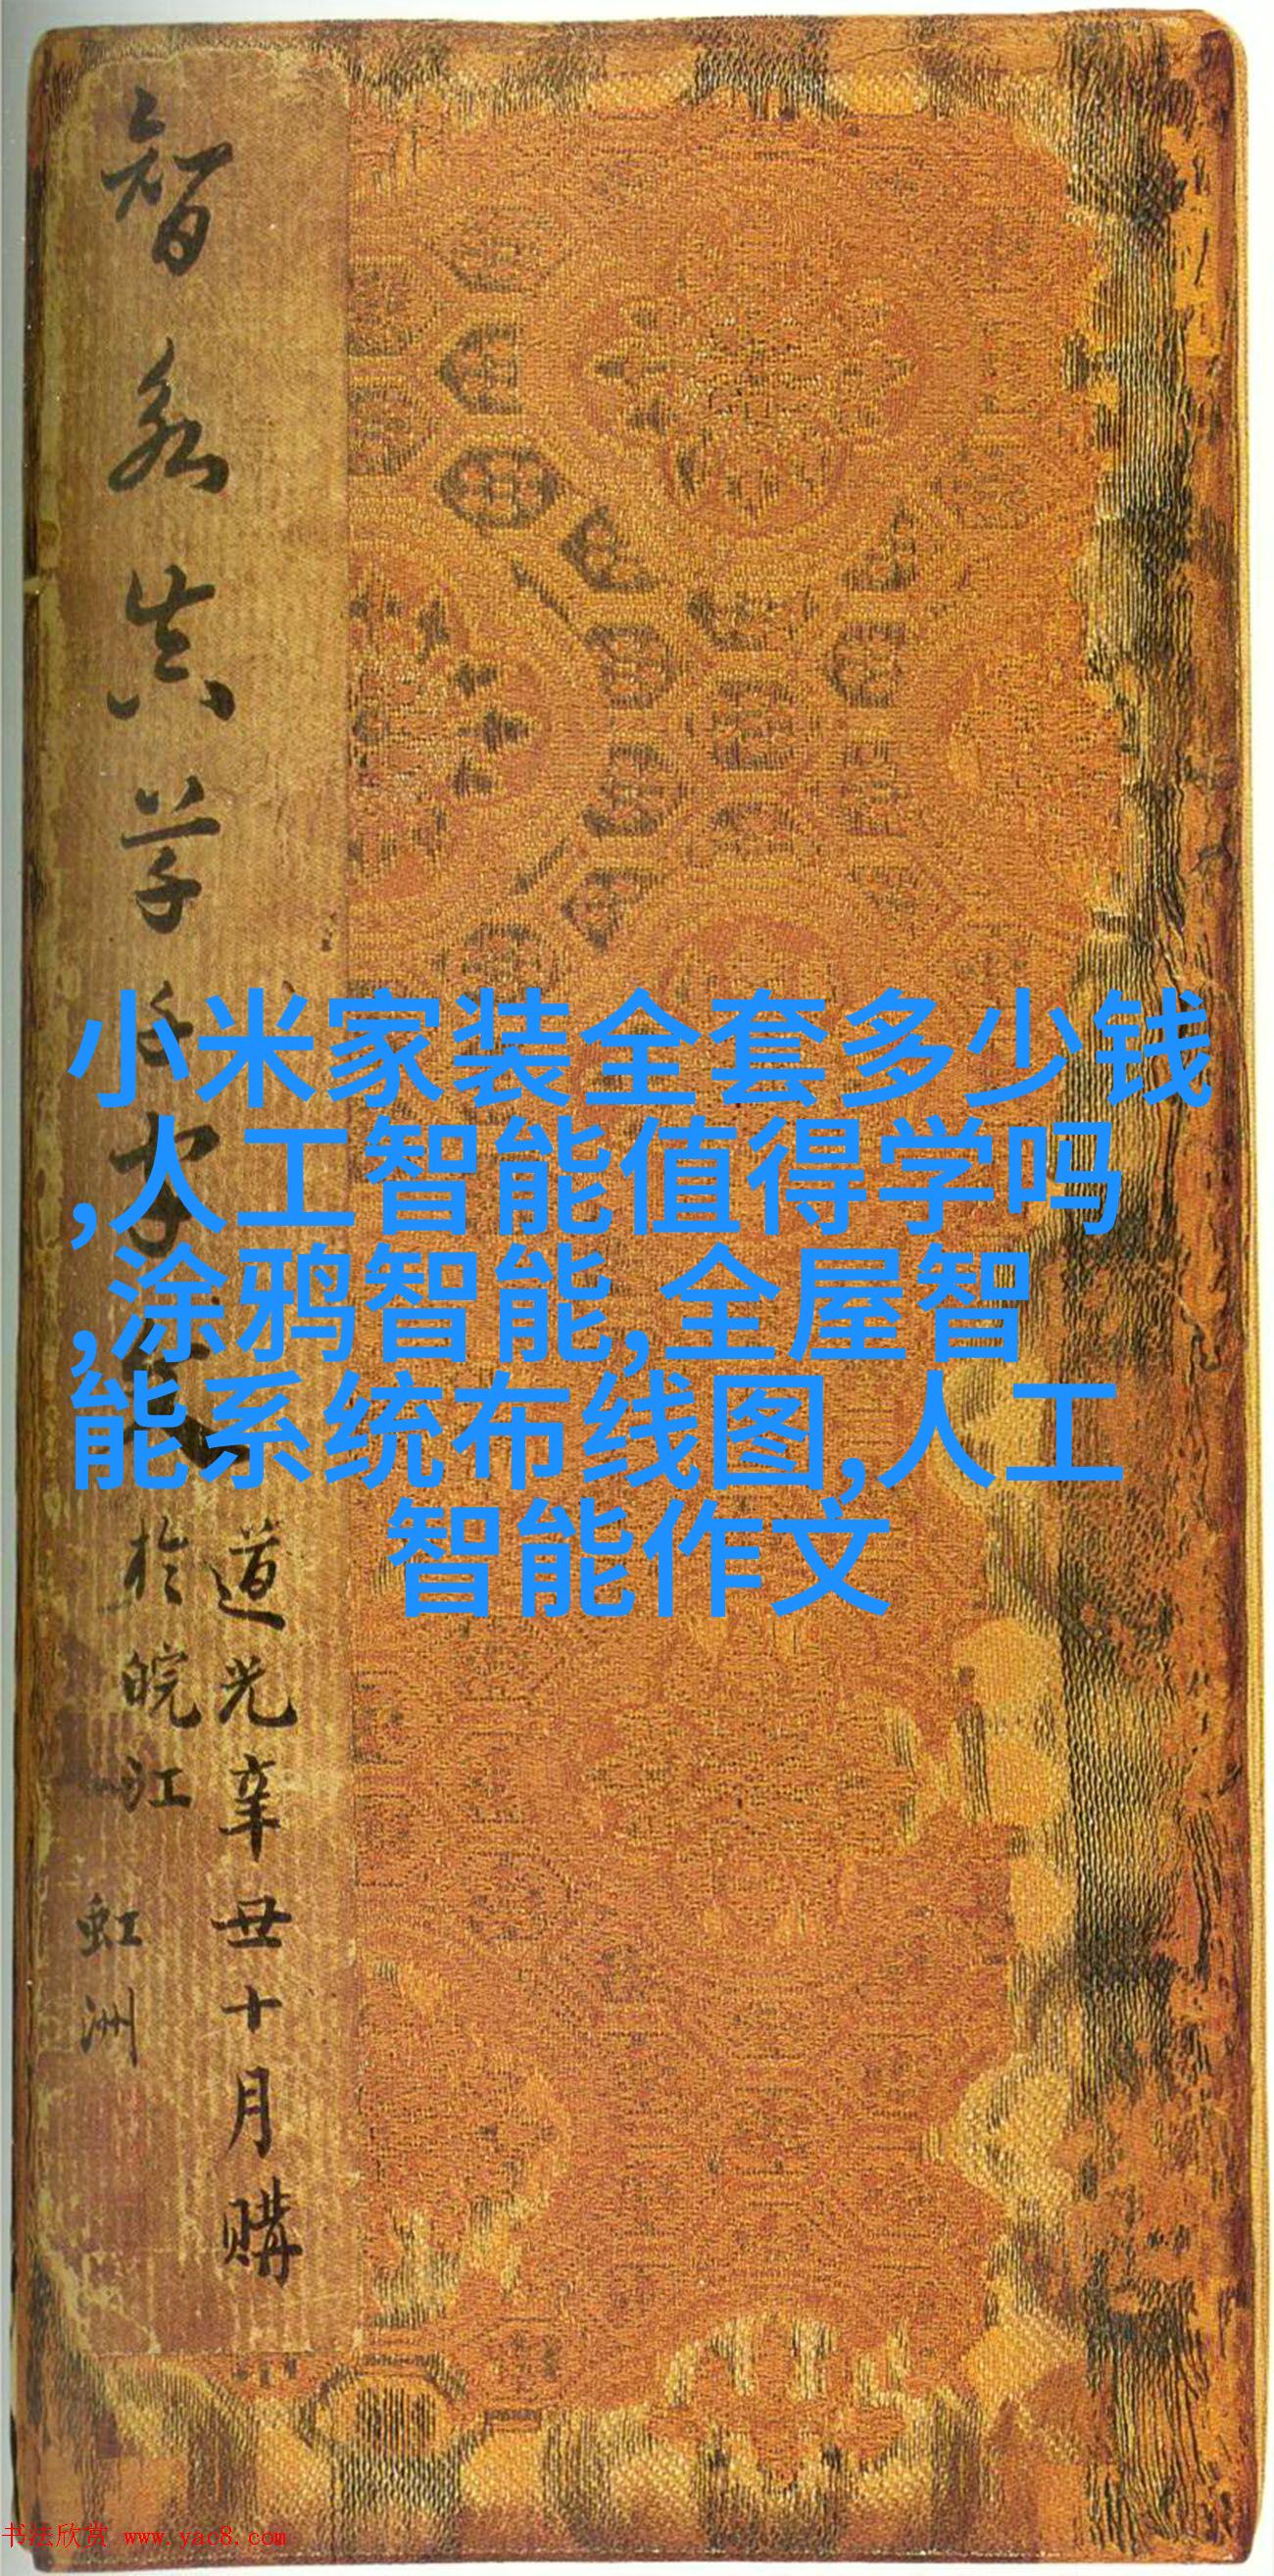 智永真草千字文
道光辛丑十月購
於皖江
虹洲
小米家装全套多少钱
,人工智能值得学吗
,涂鸦智能,全屋智
能系统布线图,人工
智能作文
书法欣赏 www.yac8.com